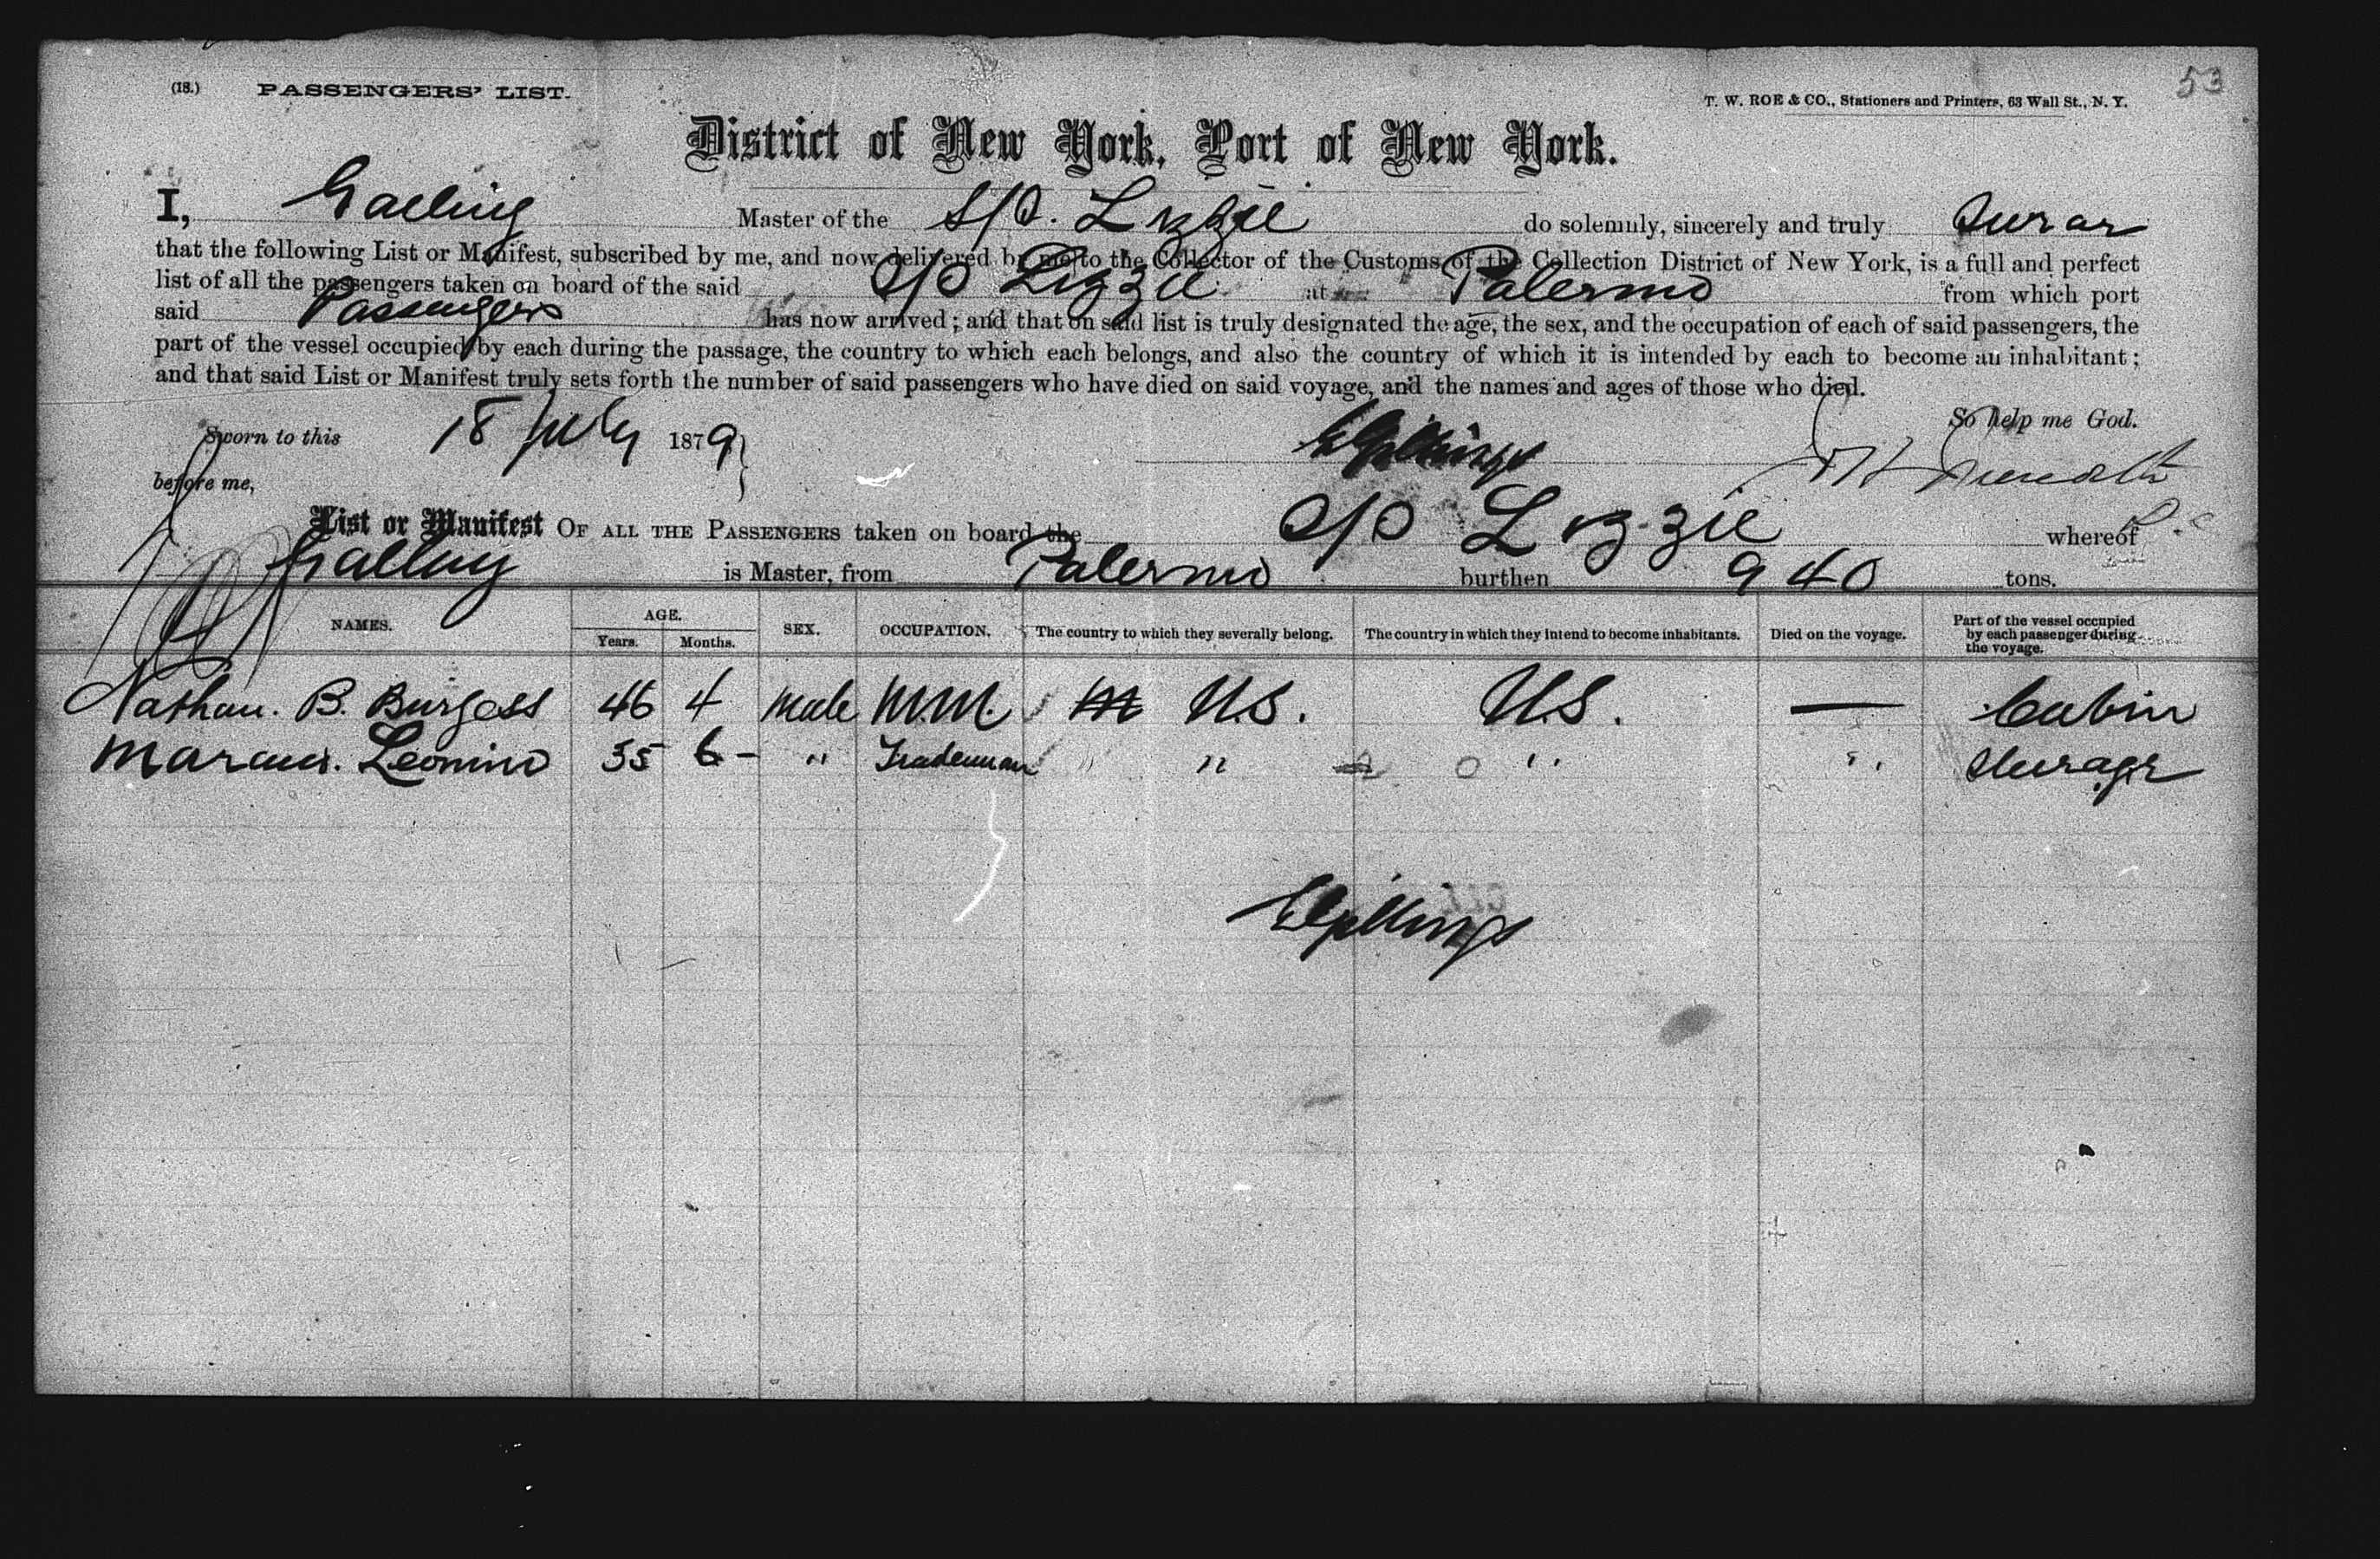 53
(18.) PASSENGERS' LIST.
T. W. ROE & CO., Stationers and Printers, 63 Wall St., N. Y.
District of New York, Port of New York.
I, Master of the S/S. Lizzie do solemnly, sincerely and truly swear
that the following List or Manifest, subscribed by me, and now delivered by me to the Collector of the Customs of the Collection District of New York, is a full and perfect
list of all the passengers taken on board of the said S/S Lizzie at Palermo from which port
said Passengers has now arrived; and that on said list is truly designated the age, the sex, and the occupation of each of said passengers, the
part of the vessel occupied by each during the passage, the country to which each belongs, and also the country of which it is intended by each to become an inhabitant;
and that said List or Manifest truly sets forth the number of said passengers who have died on said voyage, and the names and ages of those who died.
So help me God.
Sworn to this 18 July 1879
before me,
List or Manifest OF ALL THE PASSENGERS taken on board the S/S Lizzie whereof
is Master, from Palermo burthen 940 tons.
NAMES. AGE. Years. Months. SEX. OCCUPATION. The country to which they severally belong. The country in which they intend to become inhabitants. Died on the voyage. Part of the vessel occupied by each passenger during the voyage.
Nathan. B. Burgess 46 4 Male M.M. U.S. U.S. — Cabin
Leonino 35 6 - " Tradesman " " " " Steerage